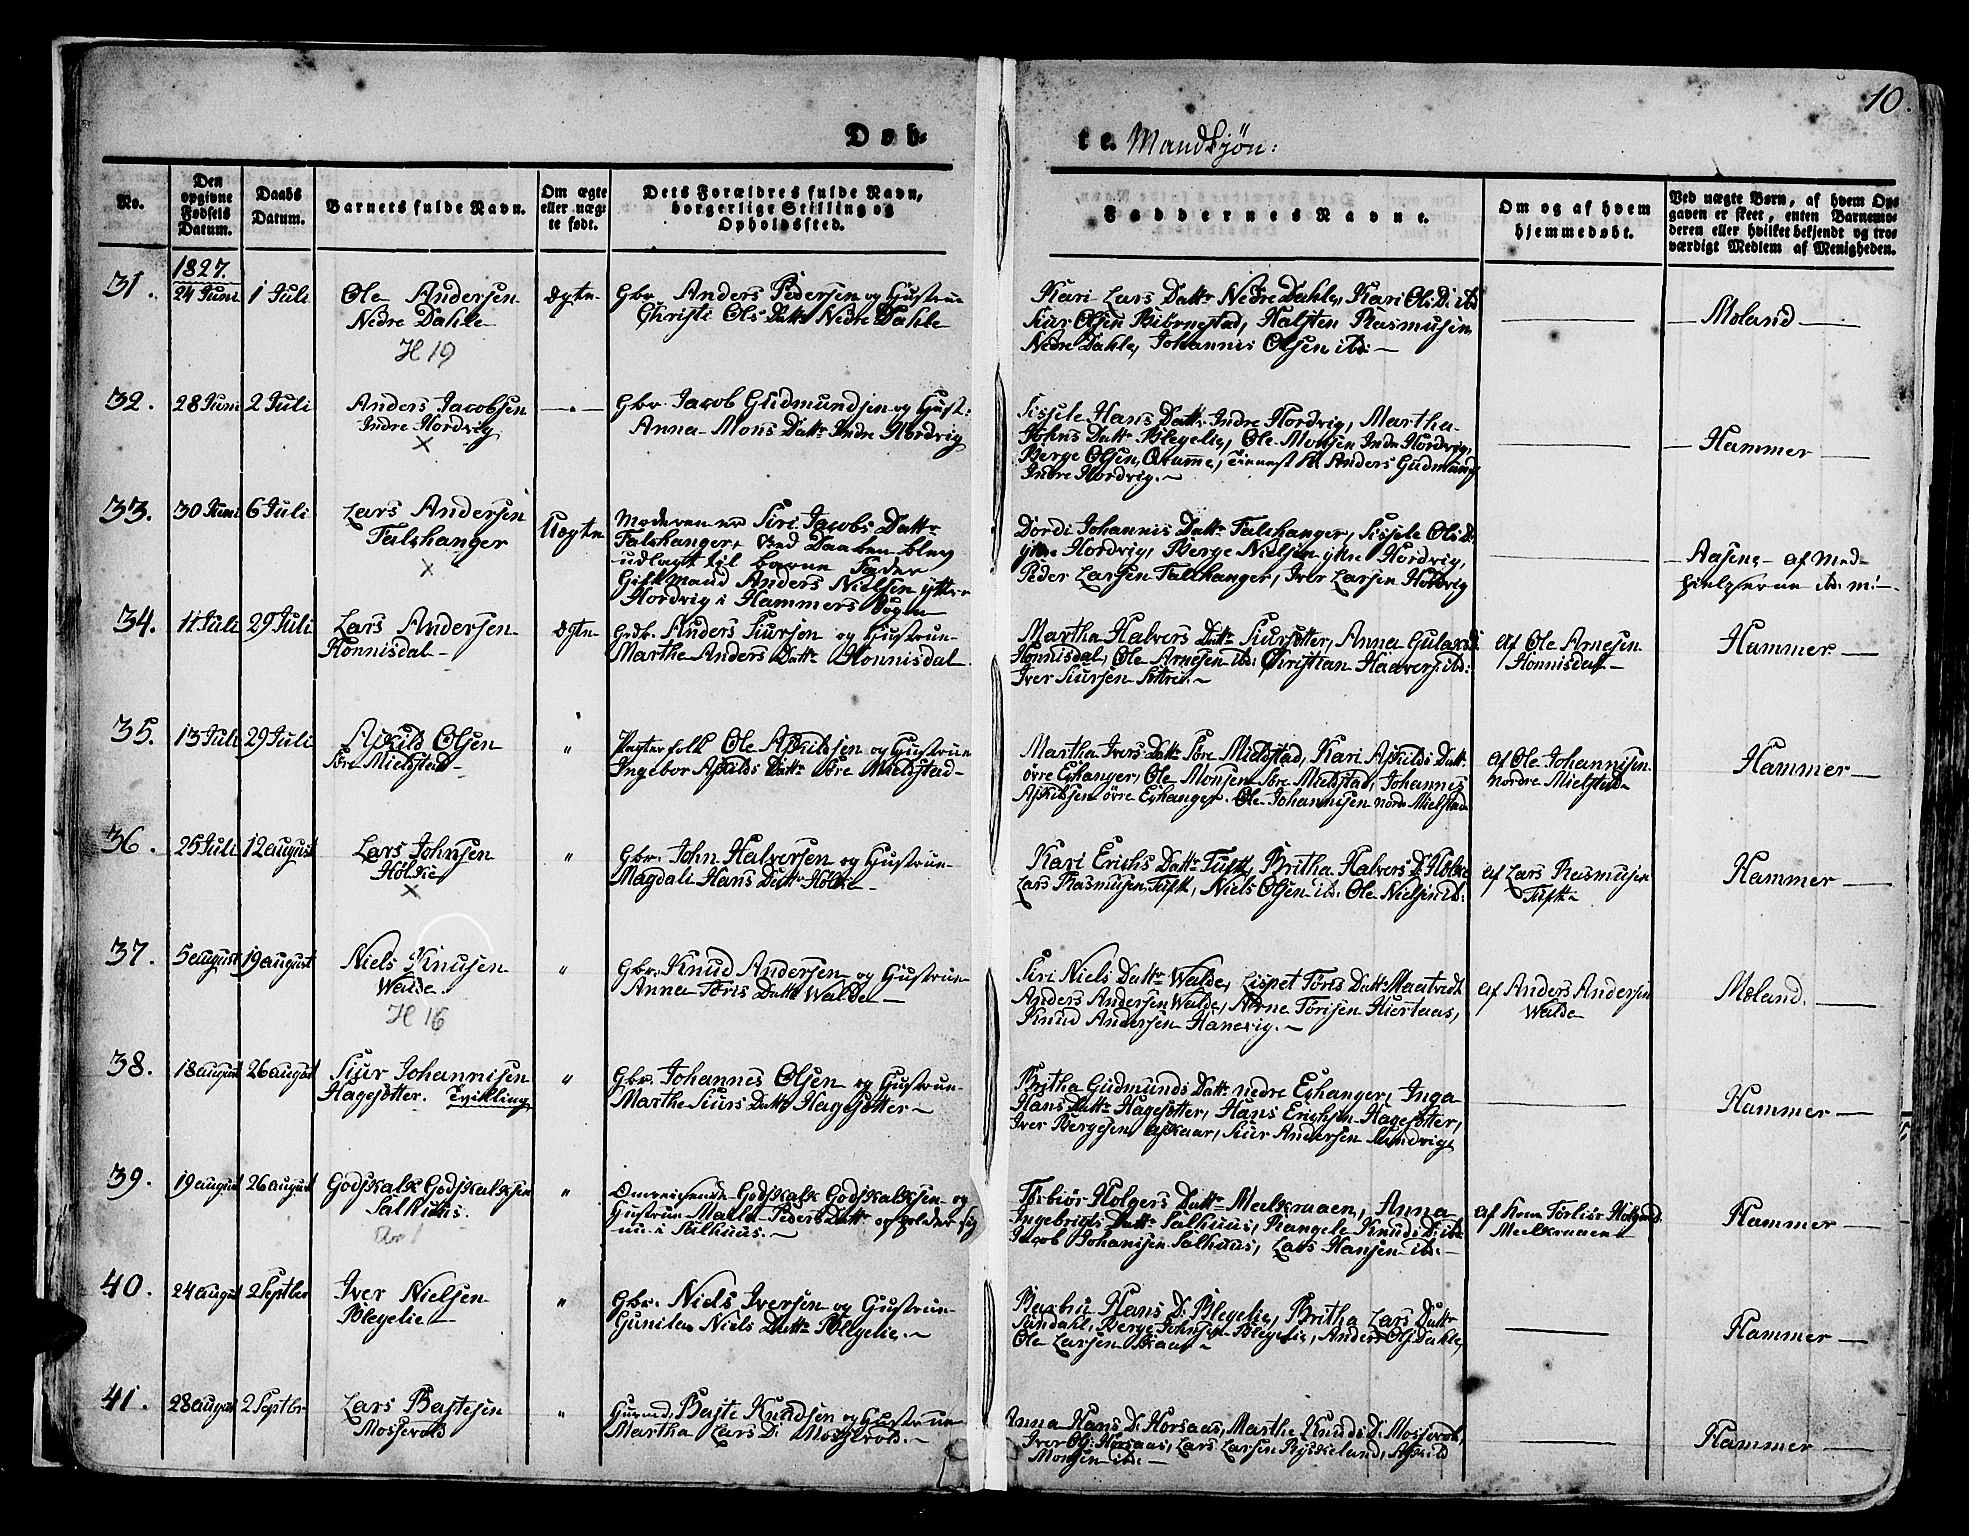 10.
Døb-
te. Mandkjøn:
No.
Den
opgivne
Fødsels
Datum.
Daabs
Datum.
Barnets fulde Navn.
Om ægte
eller uægte
te født.
Dets Forældres fulde Navn,
borgerlige Stilling og
Opholdssted.
Faddernes Navne.
Om og af hvem
hjemmedøbt.
Ved uægte Børn, af hvem Op-
gaven er skeet, enten Barnemo-
deren eller hvilket bekjendt og tro-
værdigt Medlem af Menigheden.
1827.
31. 24 Juni 1 Juli
Ole Andersen
Nedre Dahle
H 19
ægte
Gbr. Anders Pedersen og Hustrue
Christi Ols Datt. Nedre Dahle
Kari Lars Datt. Nedre Dahle, Kari Ols D. ibd
Siur Olsen Biørnestad, Halsten Rasmusen
Nedre Dahle, Johannis Olsen ibd.
Moland
32. 28 Juni 2 Juli
Anders Jacobsen
Indre Hordvig
X
Gbr. Jacob Gudmundsen og Hust:
Anna Mons Datt. Indre Hordvig
Sissele Hans Datt. Indre Hordvig, Martha
Johns Datt. Blegelie, Ole Monsen Indre Hordvig,
Berge Olsen Qvamme, Anders Gudmunds
Indre Hordvig.
Hammer
33. 30 Juni 6 Juli
Lars Andersen
Falshanger
X
Uægte
Moderen er Siri Jacobs Datt.
Falshanger. Ved Daaben blev
udlagt til barne Fader
Gift Mand Anders Nielsen ytre
Hordvig i Hammers Sogn
Dordi Johannis Datt. Falshanger, Sissele Ols D.
ytre Hordvig, Berge Nielsen ytre Hordvig,
Peder Larsen Falshanger, Iver Larsen Hordvig
Aasene - af Med-
hielperne
34. 11 Juli 29 Juli
Lars Andersen
Honnisdal
ægte
Grdb. Anders Siursen og Hustrue
Marthe Anders Datt. Honnisdal
Martha Halvers Datt. Siursetter, Anna
Honnisdal, Ole Arnesen ibd: Christian
Iver Siursen
af Ole Arnesen
Honnisdal
Hammer
35. 13 Juli 29 Juli
Askild Olsen
Søre Mielstad
"
Pagterfolk Ole Askildsen og Hustrue
Ingebor Askilds Datt. Søre Mielstad
Martha Ivers Datt. Søre Mielstad, Kari Askilds Datt.
øvre Eshanger, Ole Monsen Søre Mielstad, Johannis
Askildsen øvre Eshanger. Ole Johannisen nordre Mielstad
af Ole Johannisen
nordre Mielstad
Hammer
36. 25 Juli 12 august
Lars Johnsen
Hølke
X
"
Gbr. John Halversen og Hustrue
Magdali Hans Datt. Hølke
Kari Erichs Datt. Tuft, Britha Halvers D. Hølke
Lars Rasmusen Tuft, Niels Olsen ibd: Ole Nielsen ibd:
af Lars Rasmusen
Tuft
Hammer
37. 5 august 19 august
Niels Knusen
Walde.
H 16
"
Gbr. Knud Andersen og Hustrue
Anna Toris Datt. Walde
Siri Niels Datt. Walde, Lispet Toris Datt.
Anders Andersen Walde, Arne Torisen Hiertaas,
Knud Andersen Hanevig.
af Anders Andersen
Walde
Moland.
38. 18 august 26 august
Siur Johannisen
Hagesøtter. Tvilling
"
Gbr. Johannes Olsen og Hustrue
Marthe Siurs Datt. Hagesøtter
Britha Gudmunds Datt. nedre Eshanger, Inga
Hans Datt. Hagesøtter, Hans Erichsen Hagesøtter,
Iver Bergesen Askaar, Siur Andersen Sundvig
Hammer
39. 19 august 26 august
Godskalk Godskalksen
Salhuus.
"
Omreisende Godskalk Godskalksen og
Hustrue Peders Datt. opholder sig
nu i Salhuus.
Torbiør Holgers Datt. Meelkraaen, Anna
Ingebrigts Datt. Salhuus, Rangele Knuds D. ibd
Jacob Johanisen Salhuus, Lars Hansen ibd:
af Torbiør Holgersd.
Meelkraaen
Hammer
40. 24 august 2 Septbr
Iver Nielsen
Blegelie
"
Gbr. Niels Iversen og Hustrue
Gunilda Niels Datt. Blegelie.
Barbru Hans D. Blegelie, Britha Lars Datt.
Sundahl, Berge Johnsen Blegelie, Anders Ols Dahle,
Ole Larsen Skaar
Hammer
41. 28 august 2 Septbr
Lars Bastesen
Mossevold
"
Huusmd. Baste Knudsen og Hustrue
Martha Lars D. Mossevold.
Anna Hans D. Horsaas, Marthe Knuds D. Mossevold,
Iver Ols: Horsaas, Lars Larsen Askild
Monsen ibd:
Hammer